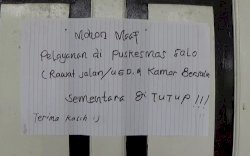 " Mohon Maaf "
Pelayanan di Puskesmas Salo
(Rawat Jalan/UGD.& Kamar Bersalin
Sementara di TUTUP !!!
Terima kasih :)